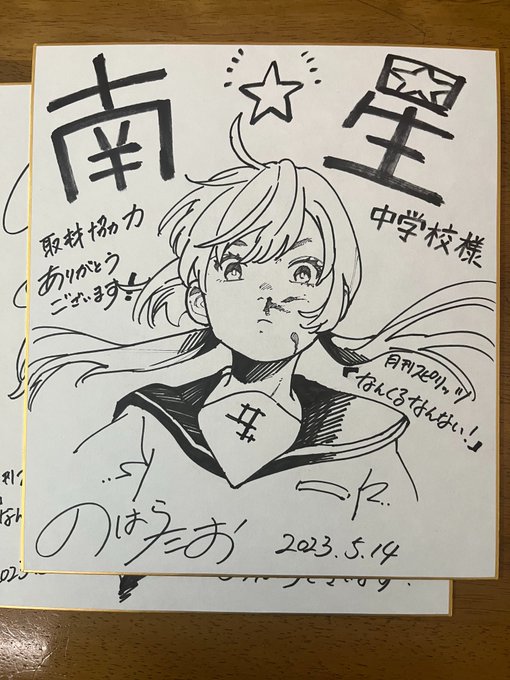 南星
中学校様
取材協力
ありがとう
ございます!!
月刊スピリッツ
「なんくるなんない!」
のはらたお
2023.5.14